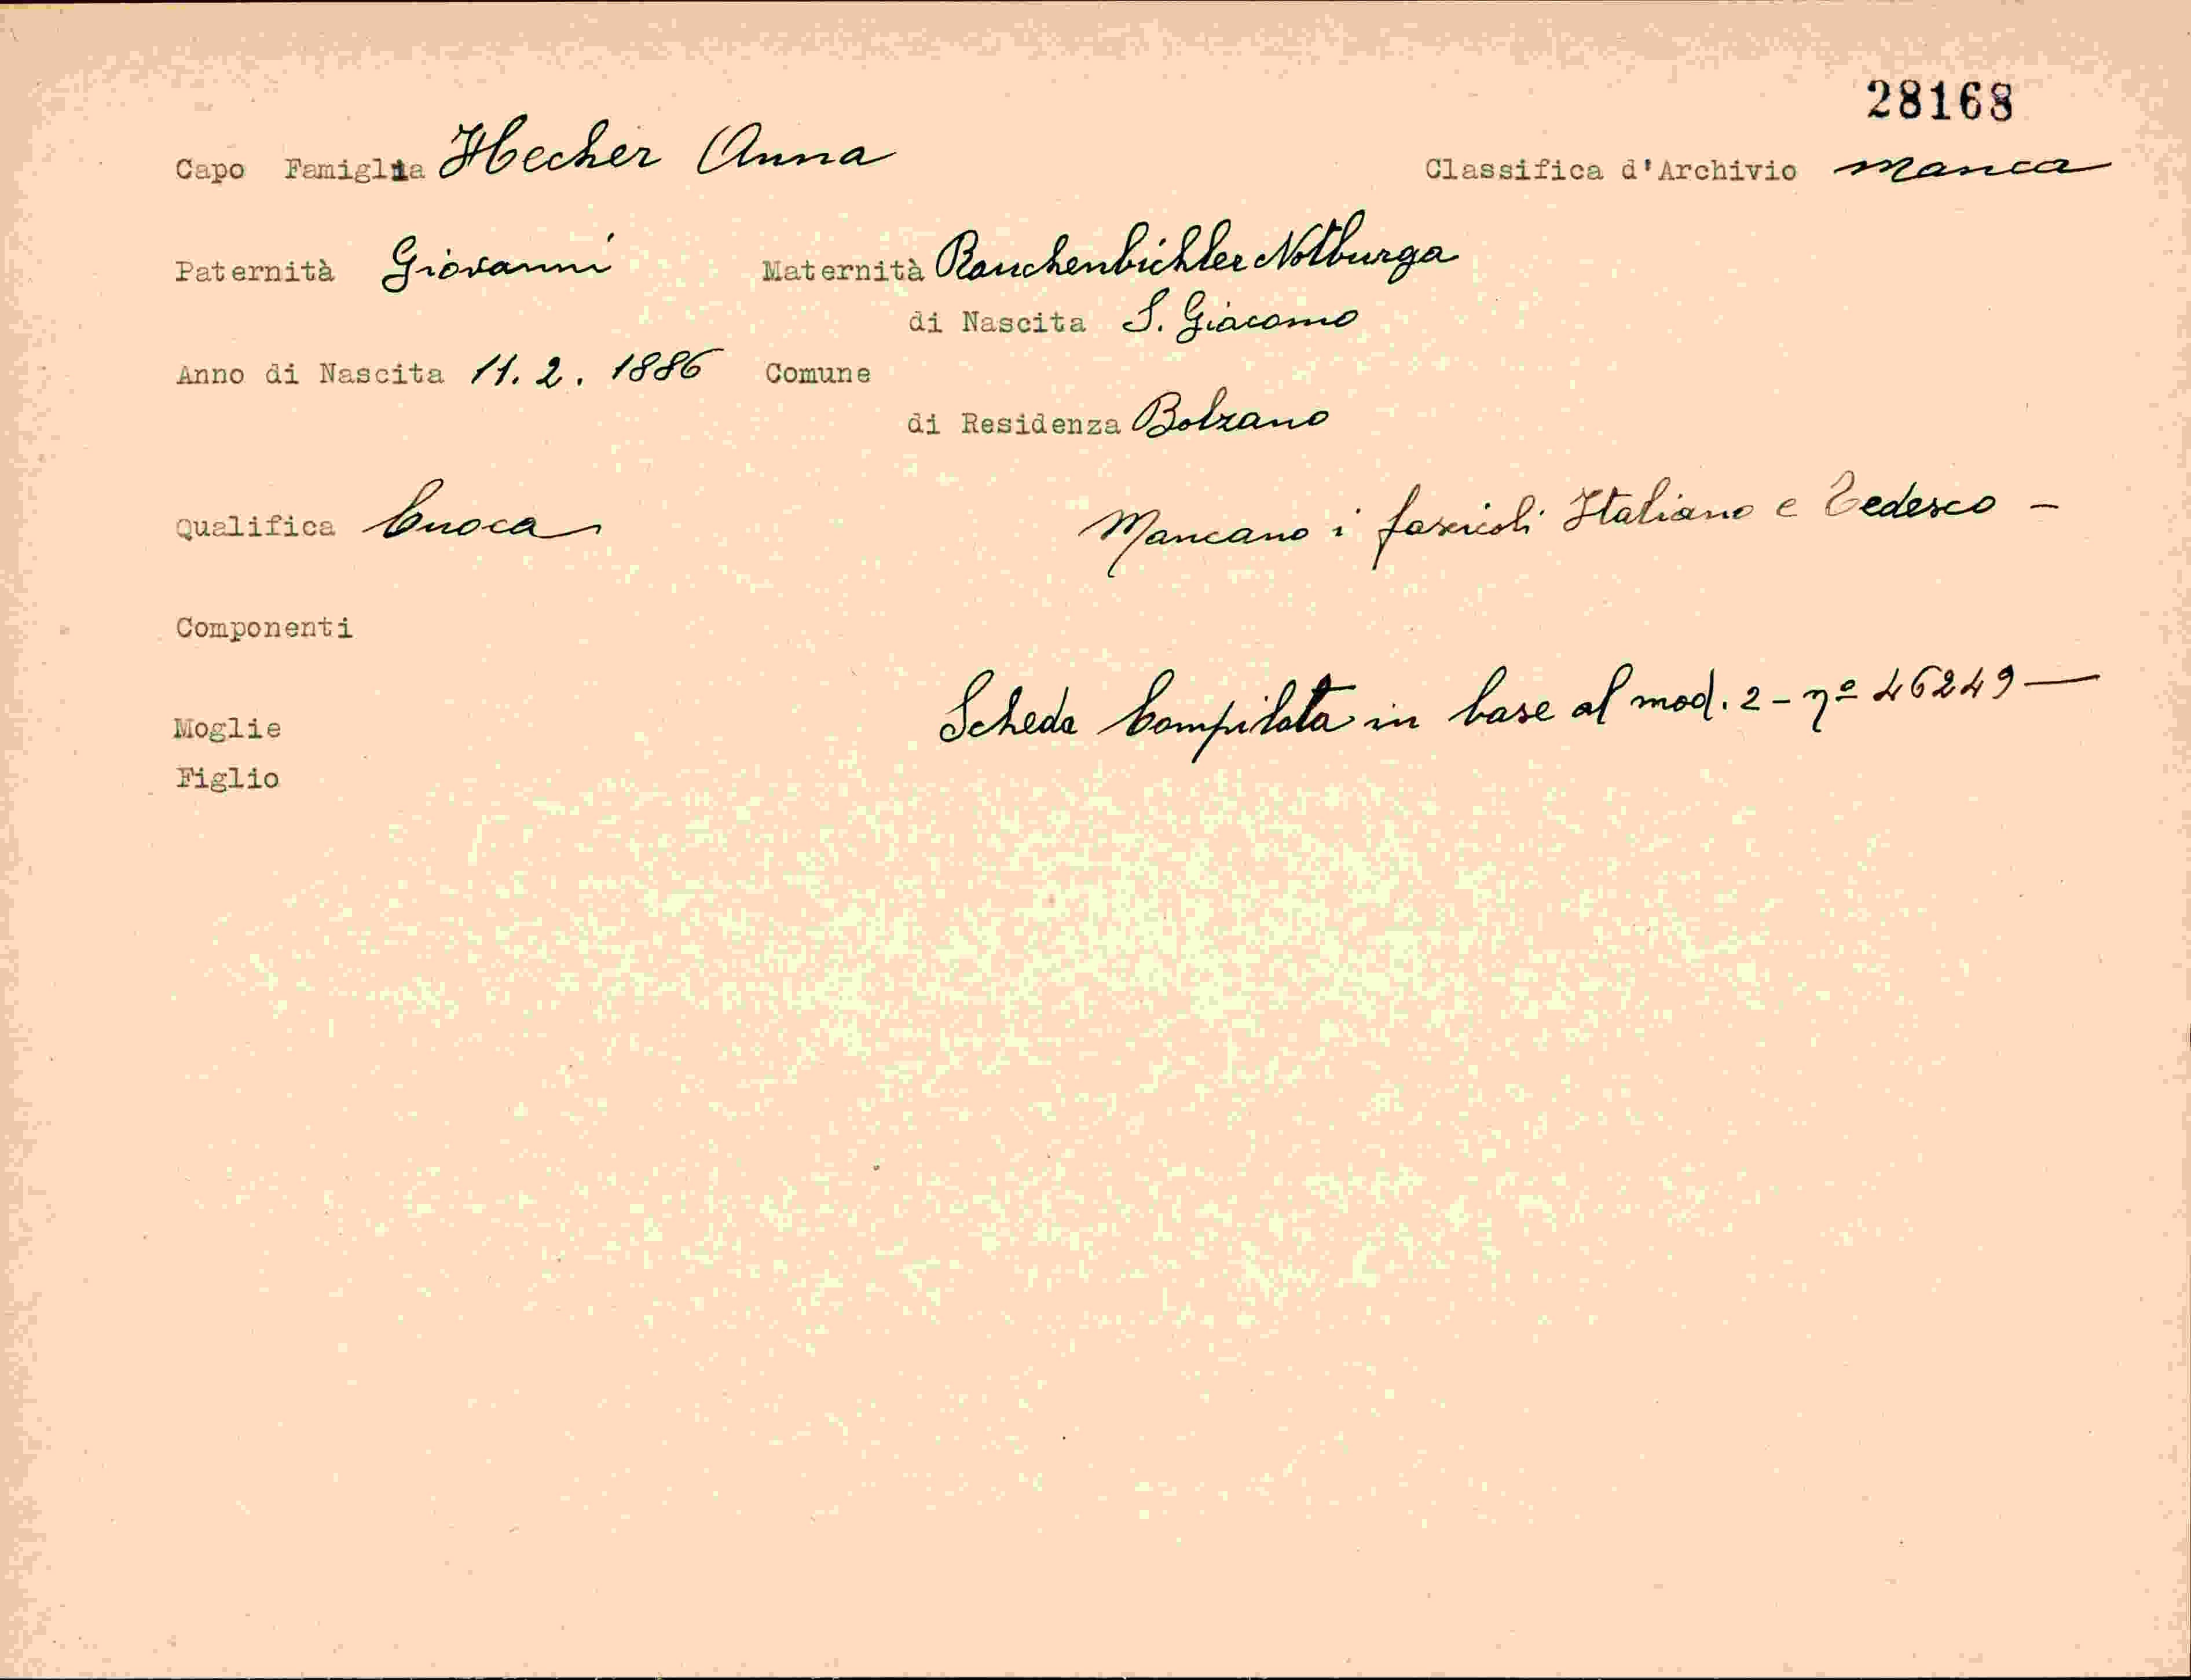 28168
Capo Famiglia Hecher Anna Classifica d'Archivio manca
Paternità Giovanni Maternità Rauchenbichler Notburga
di Nascita S. Giacomo
Anno di Nascita 11. 2. 1886 Comune
di Residenza Bolzano
Qualifica Cuoca Mancano i fascicoli Italiano e Tedesco -
Componenti
Scheda Compilata in base al mod. 2 - nº 46249 —
Moglie
Figlio